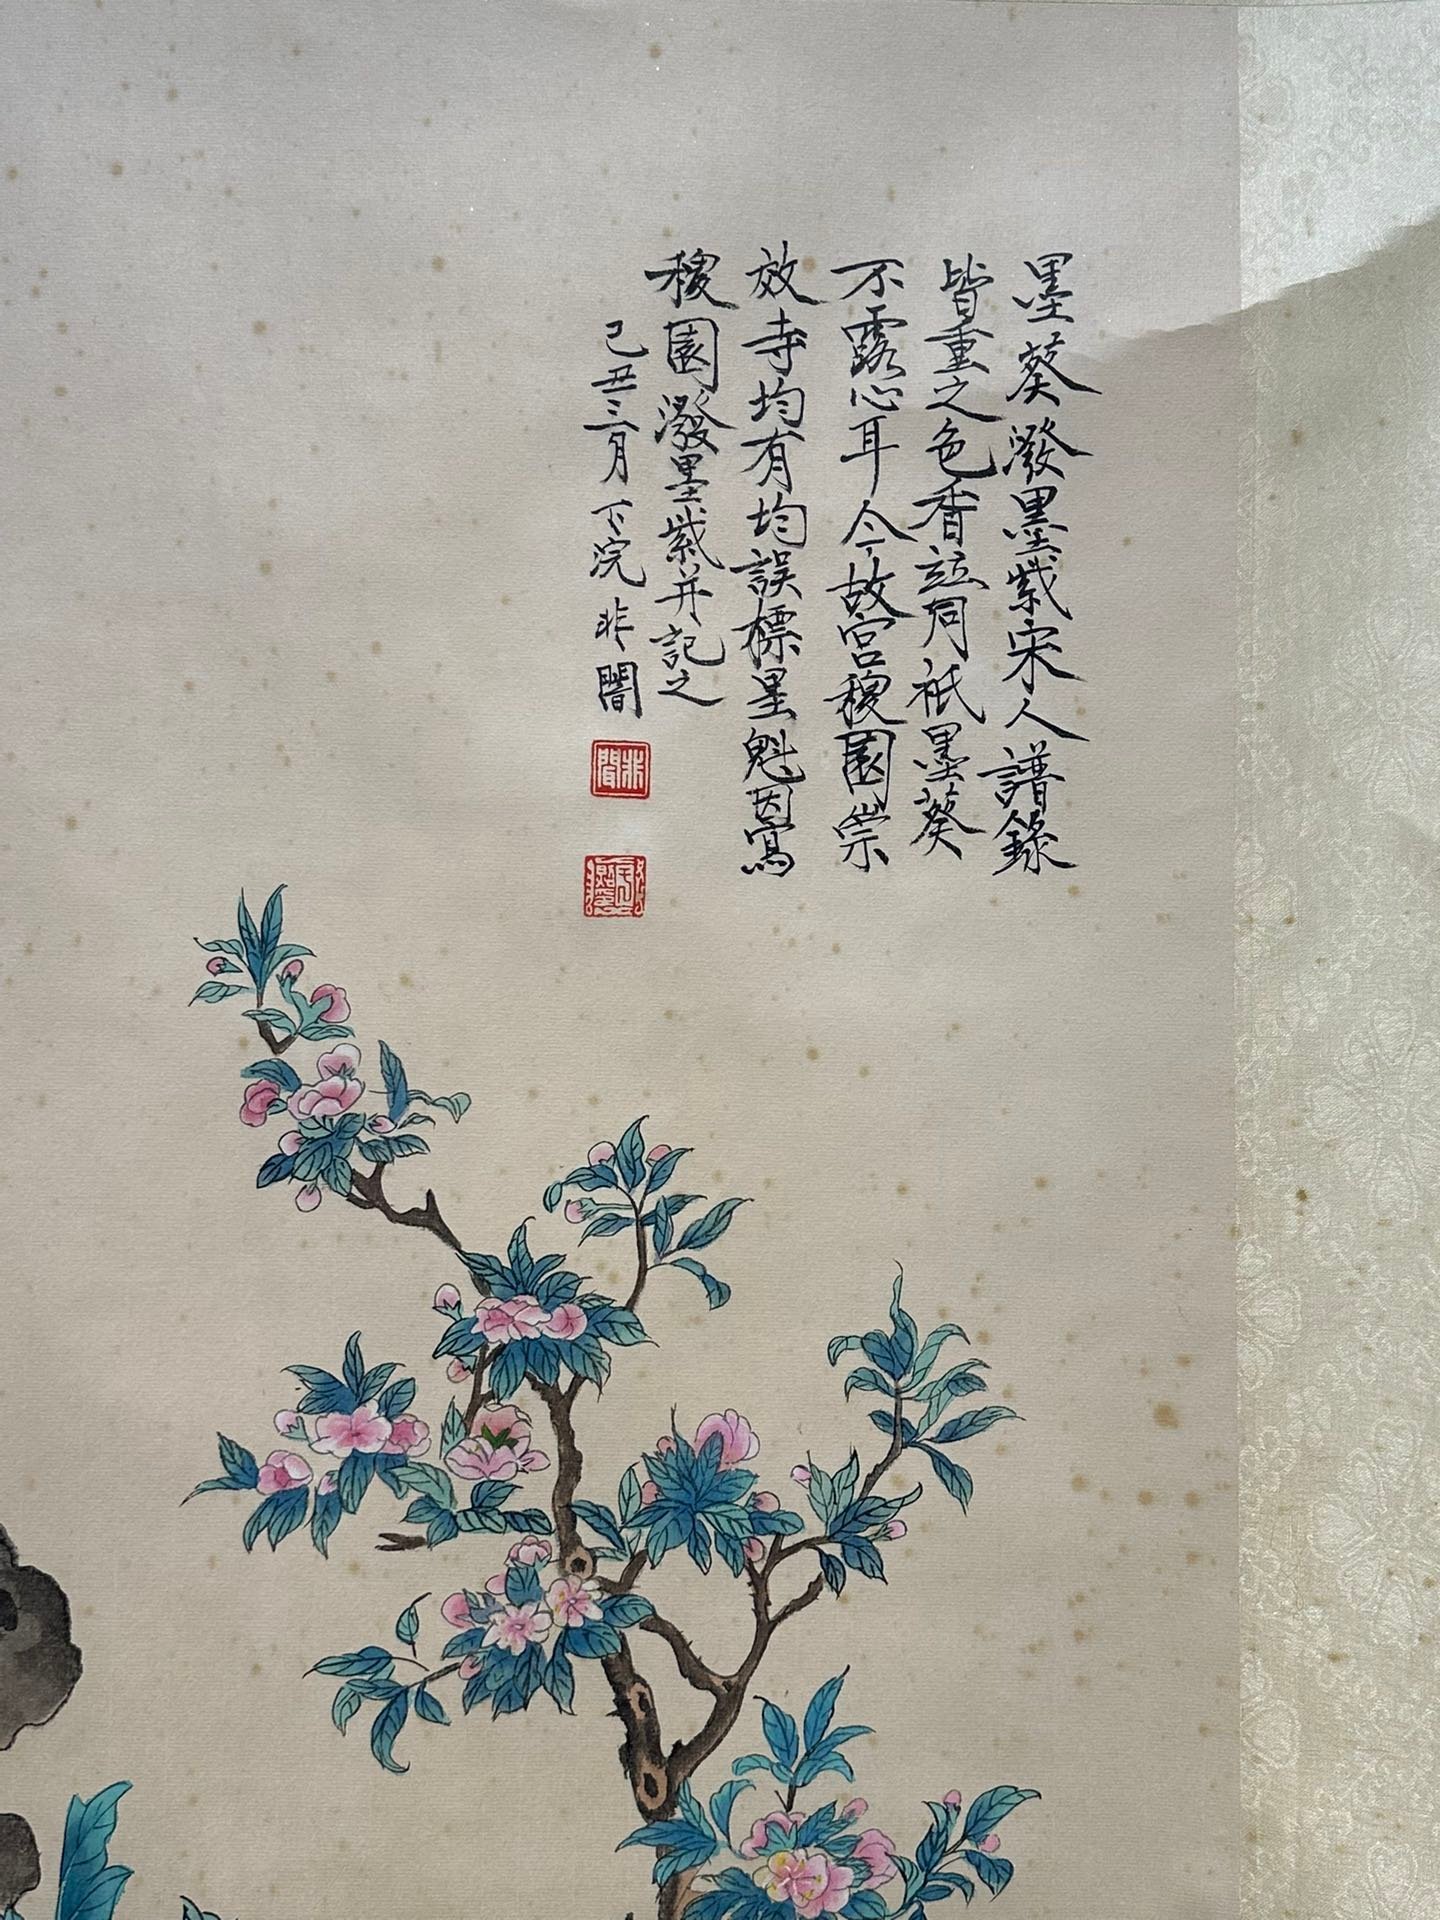 墨葵潑墨紫宋人譜錄
皆重之色香竝同祇墨葵
不露心耳今故宮稷園崇
效寺均有均誤標墨魁因寫
稷園潑墨紫并記之
己丑三月下浣非闇
非闇